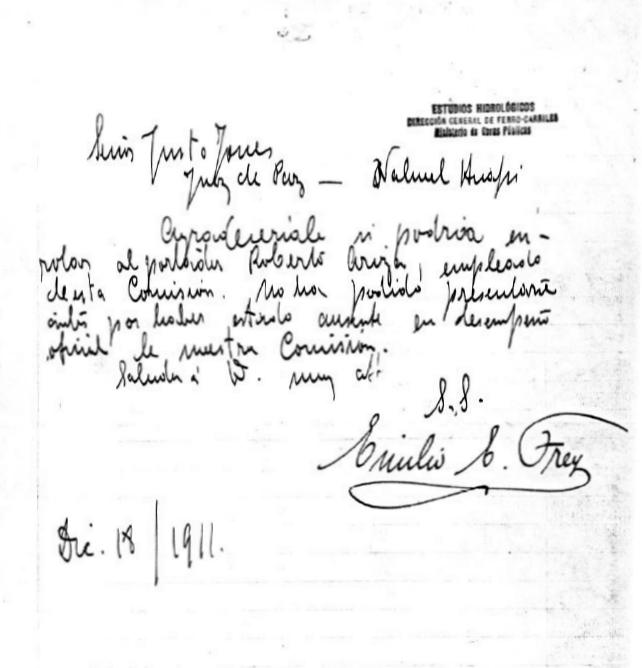 ESTUDIOS HIDROLÓGICOS
DIRECCIÓN GENERAL DE FERRO-CARRILES
Ministerio de Obras Públicas
Justo Jones
Juez de Paz — Nahuel Huapi
Agradeceriale si podria en-
rolar al portador Roberto Ariza, empleado
de esta Comisión. No ha podido presentarse
antes por haber estado ausente en desempeño
oficial de nuestra Comisión.
Saluda á U. muy att
S.S.
Emilio E. Frey
Dic. 18/1911.